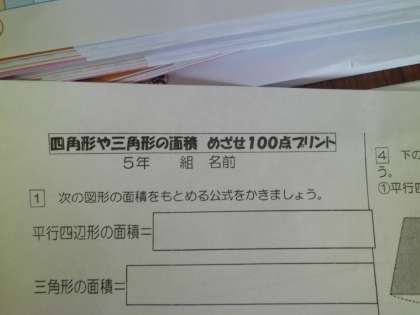 四角形や三角形の面積 めざせ100点プリント
5年 組 名前
1 次の図形の面積をもとめる公式をかきましょう。
平行四辺形の面積=
三角形の面積=
4 下の
う。
①平行四